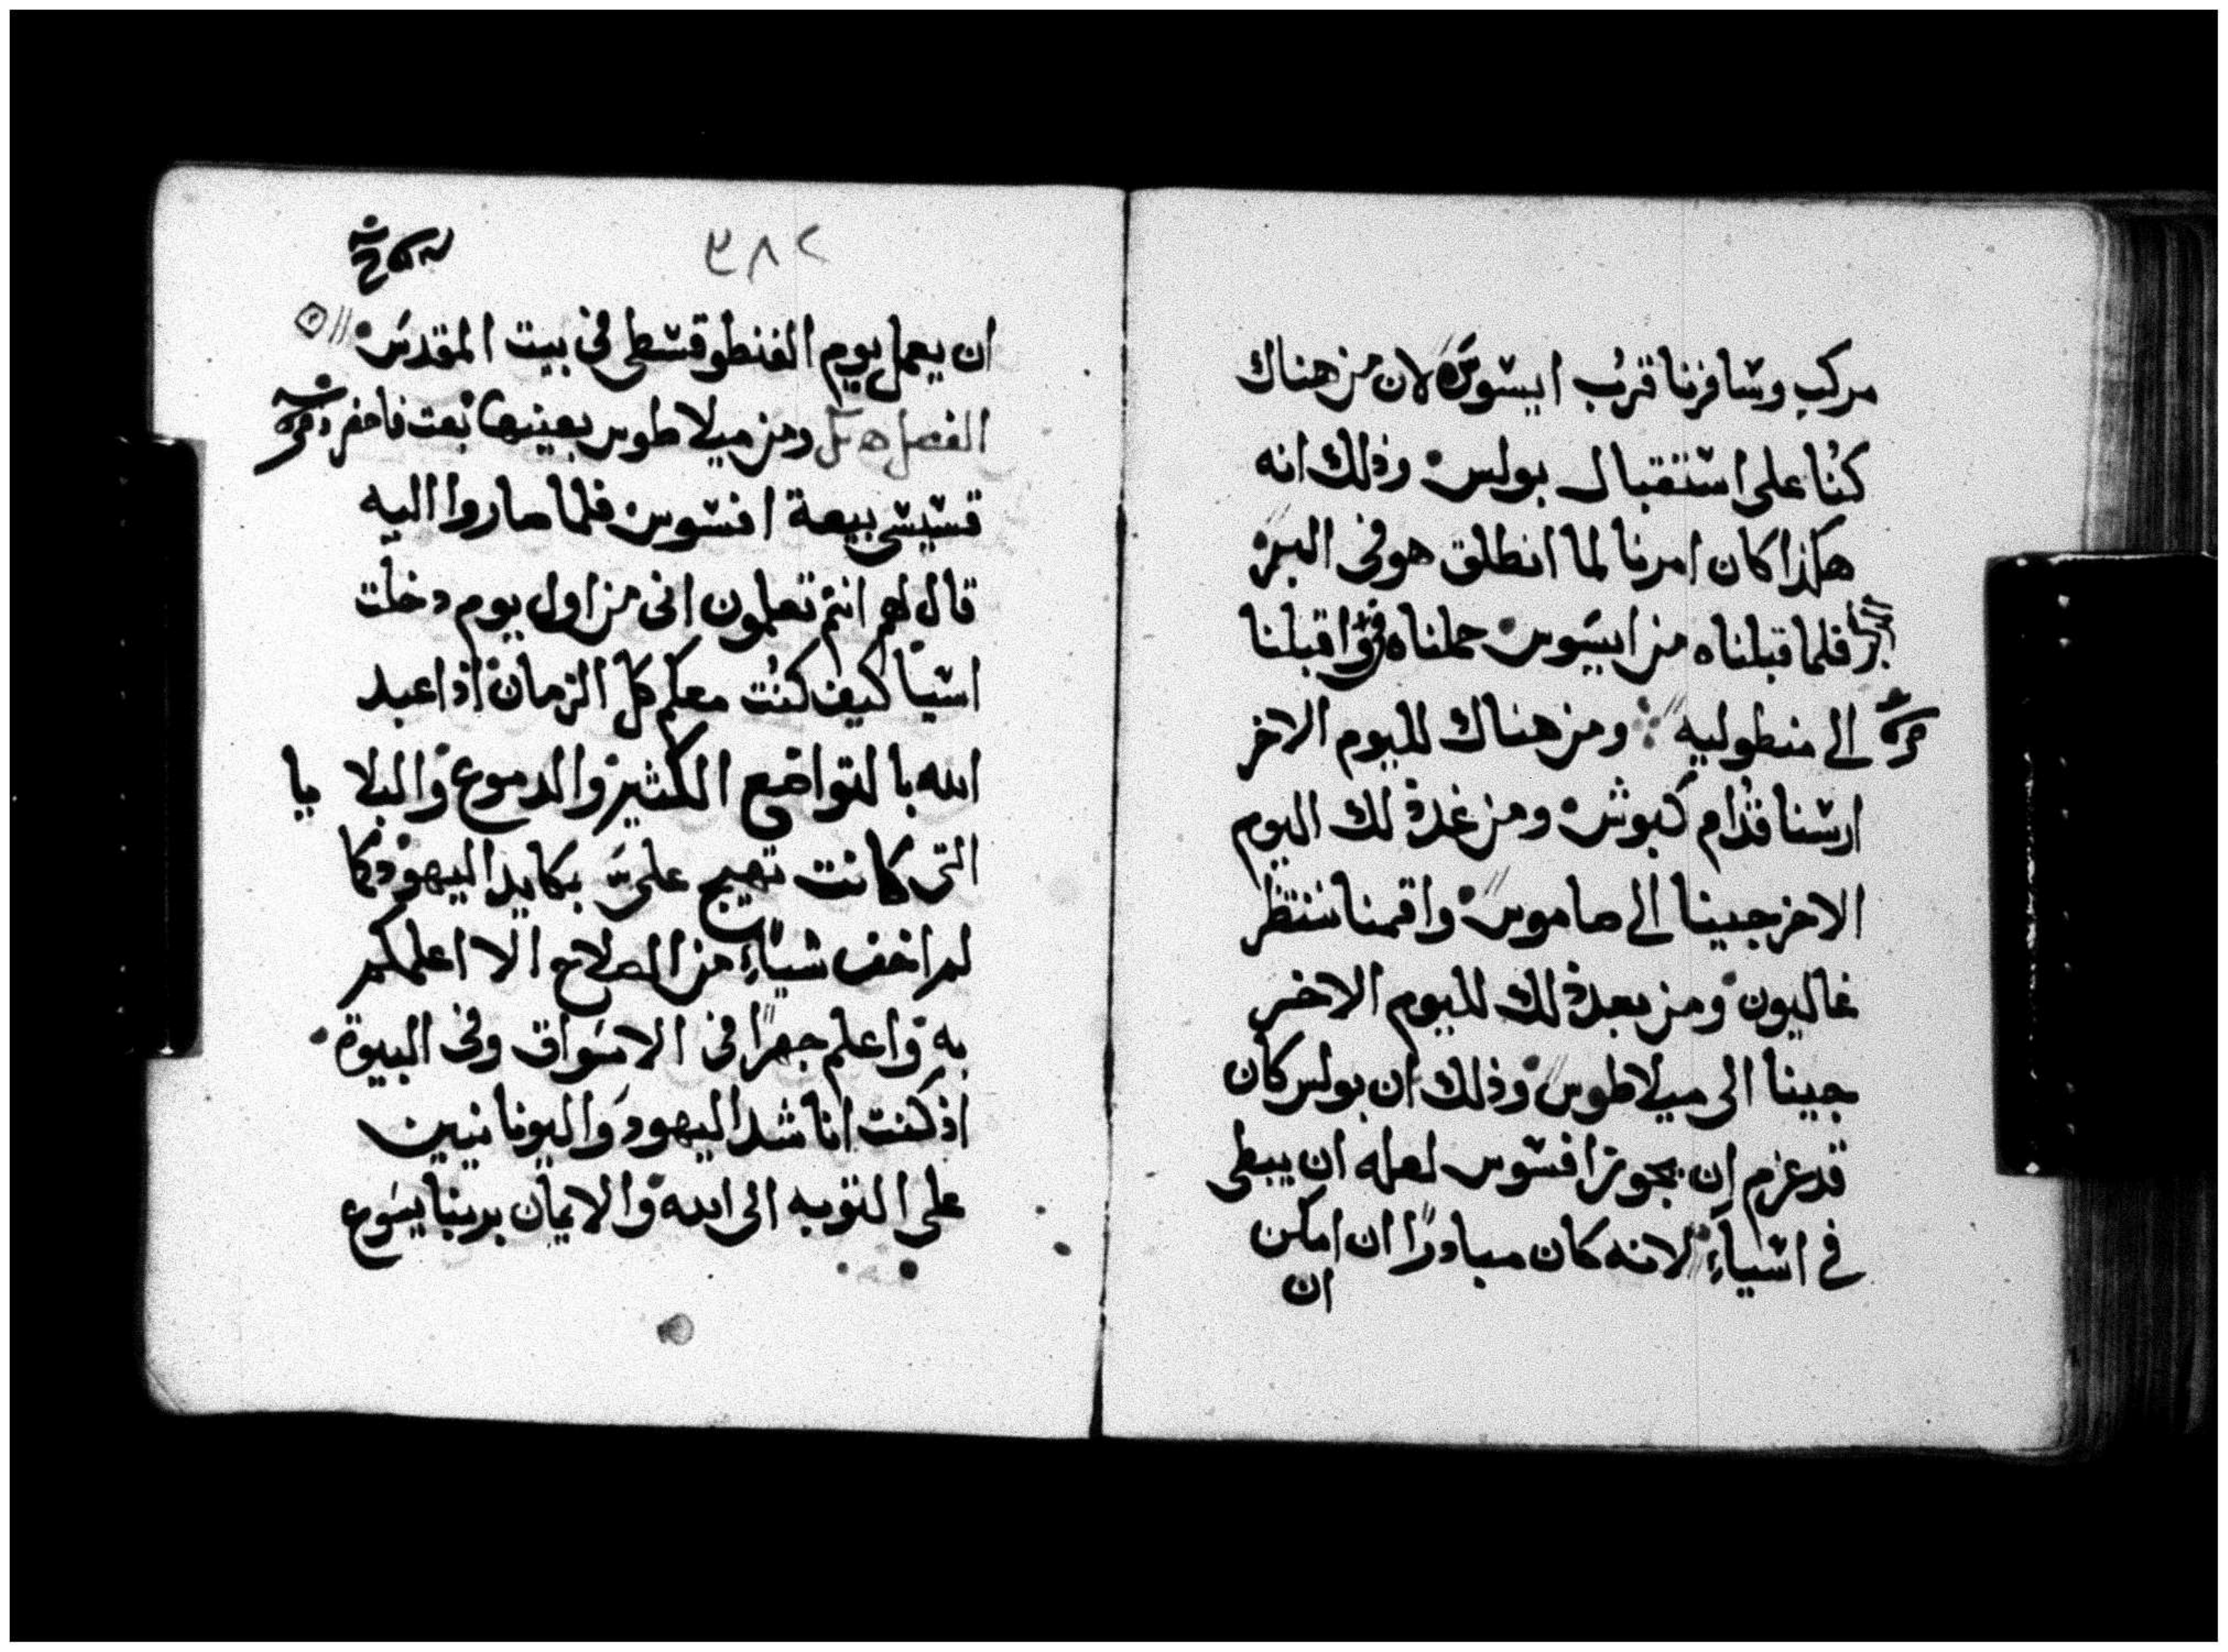 مركب وسافرنا قرب ايسوس لان من هناك
كنا على استقبال بولس وذلك انه
هكذا كان امرنا لما انطلق هو فى البر
فلما قبلناه من ايسوس حملناه واقبلنا
الى منطوليه ومن هناك لليوم الاخر
ارسنا قدام كيوش ومن غد ذلك اليوم
الاخر جينا الى صاموس واقمنا ننتظر
غاليون ومن بعد ذلك لليوم الاخر
جينا الى ميلاطوس وذلك ان بولس كان
قد عزم ان يجوز افسوس لعله ان يبطى
فى اسياء لانه كان مبادرا ان امكن
ان
٣٨٢
ان يعمل يوم الفنطوقسطى فى بيت المقدس
الفصل ومن ميلاطوس بعينها بعت فاحضر
قسيسى بيعة افسوس فلما صاروا اليه
قال لهم انتم تعلمون انى من اول يوم دخلت
اسيا كيف كنت معكم كل الزمان اذ اعبد
الله بالتواضع الكثير والدموع والبلايا
التى كانت تهيج على بكايد اليهود كما
لم اخف شياء من الصلاح الا اعلمكم
به واعلم جهرا فى الاسواق وفى البيوة
اذ كنت اناشد اليهود واليونانيين
على التوبه الى الله والايمان بربنا يسوع